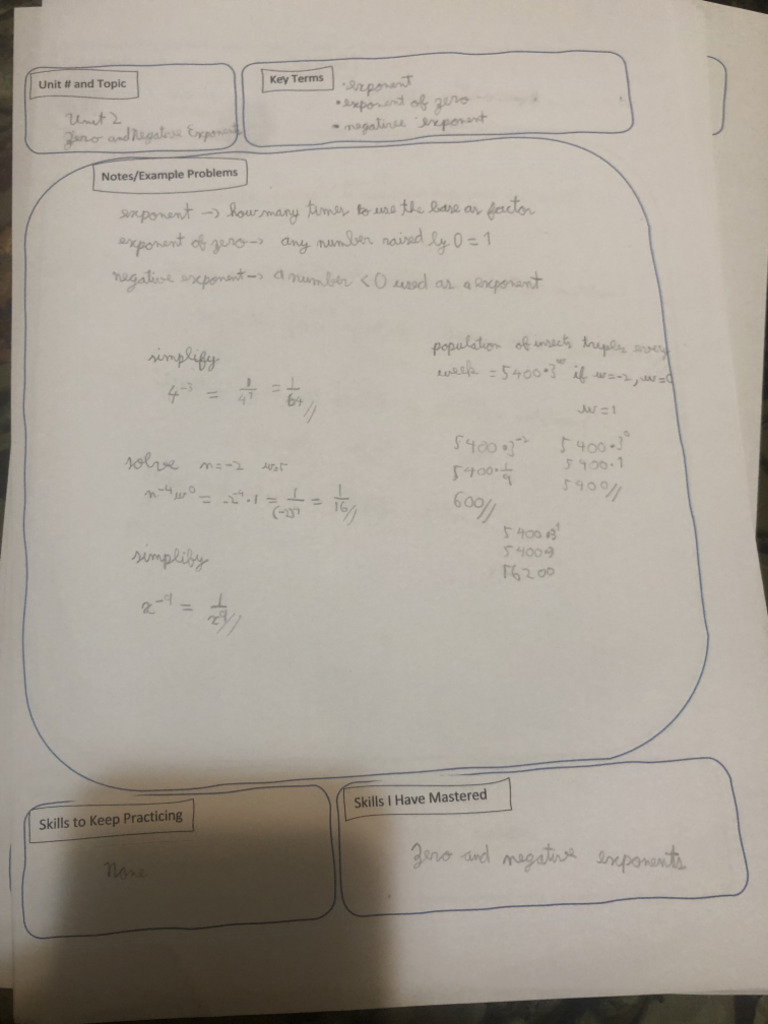 Unit # and Topic
Unit 2
Zero and Negative Exponents
Key Terms
• exponent
• exponent of zero
• negative exponent
Notes/Example Problems
exponent → how many times to use the base as factor
exponent of zero → any number raised by 0 = 1
negative exponent → a number < 0 used as a exponent
simplify
4⁻³ = 1/4³ = 1/64 //
solve n = -2 w=5
n⁻⁴w⁰ = -2⁻⁴ · 1 = 1/(-2)⁴ = 1/16 //
simplify
x⁻⁹ = 1/x⁹ //
population of insects triples every
week = 5400 · 3ʷ if w = -2, w = 0
w = 1
5400 · 3⁻²
5400 · 1/9
600 //
5400 · 3⁰
5400 · 1
5400 //
5400 · 3¹
5400 · 3
16200
Skills to Keep Practicing
None
Skills I Have Mastered
Zero and negative exponents